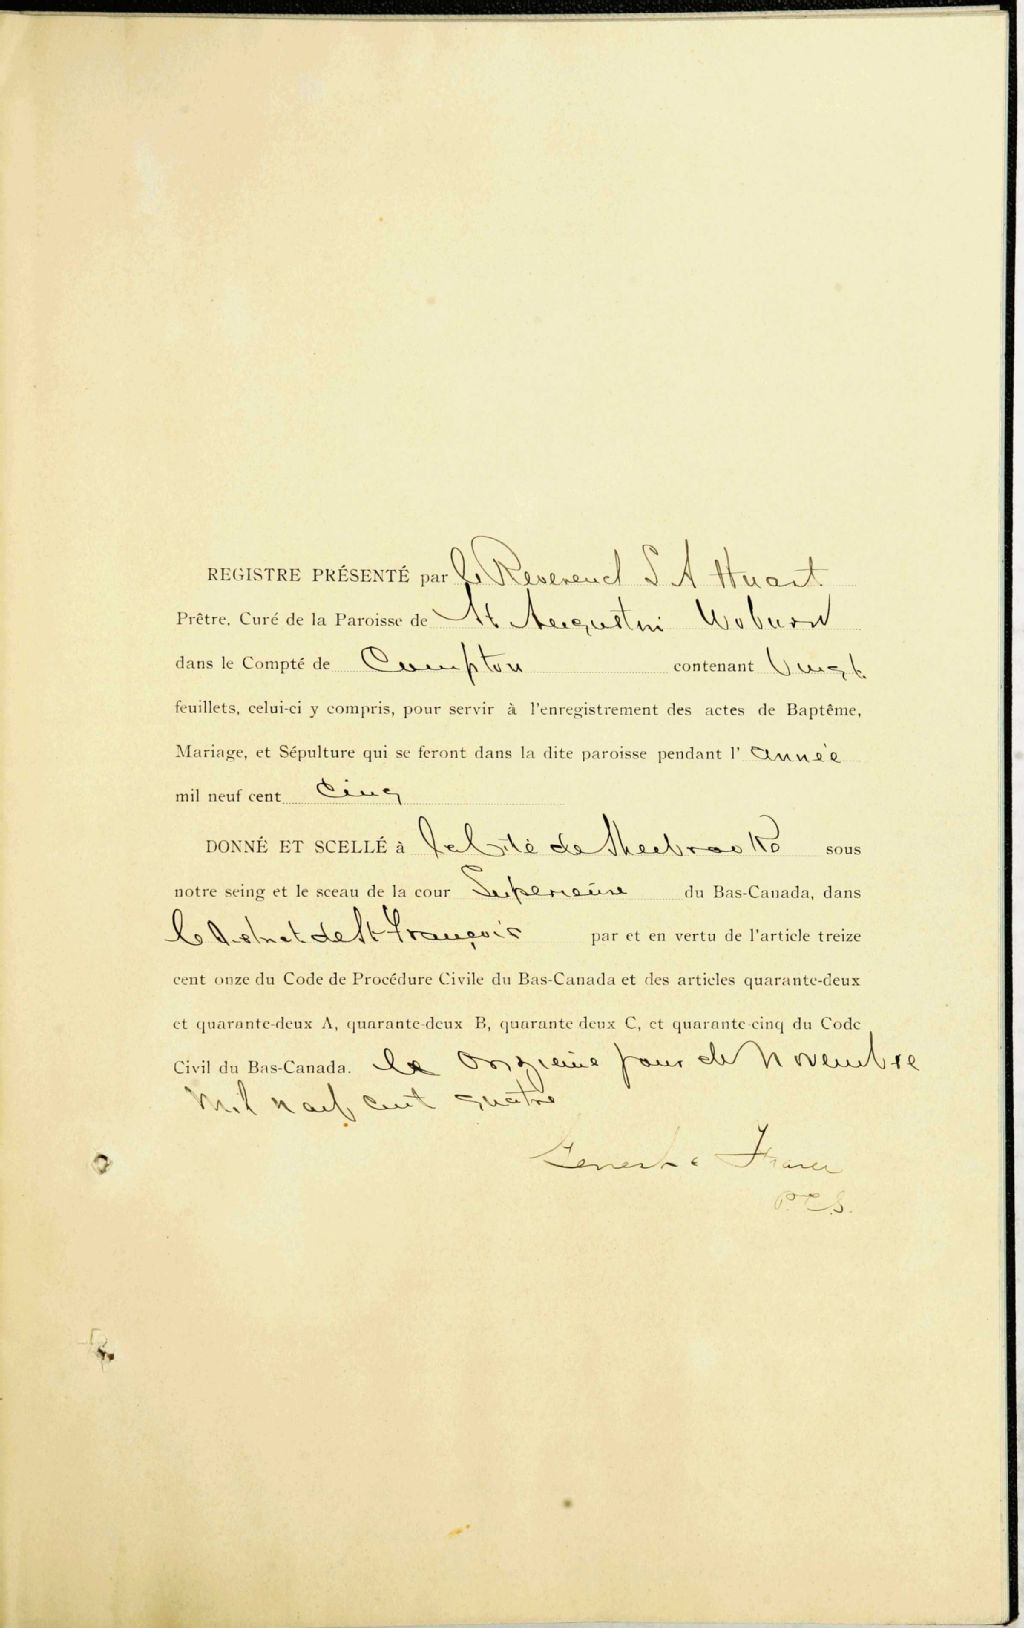 REGISTRE PRÉSENTÉ par le Reverend S A Huart
Prêtre, Curé de la Paroisse de St Augustin Woburn
dans le Compté de Compton contenant Vingt
feuillets, celui-ci y compris, pour servir à l'enregistrement des actes de Baptême,
Mariage, et Sépulture qui se feront dans la dite paroisse pendant l' année
mil neuf cent cinq
DONNÉ ET SCELLÉ à la Cité de Sherbrooke sous
notre seing et le sceau de la cour Superieure du Bas-Canada, dans
le District de St François par et en vertu de l'article treize
cent onze du Code de Procédure Civile du Bas-Canada et des articles quarante-deux
et quarante-deux A, quarante-deux B, quarante deux C, et quarante-cinq du Code
Civil du Bas-Canada. le Onzieme jour de Novembre
Mil neuf cent quatre
Genest & Fraser
P.C.S.